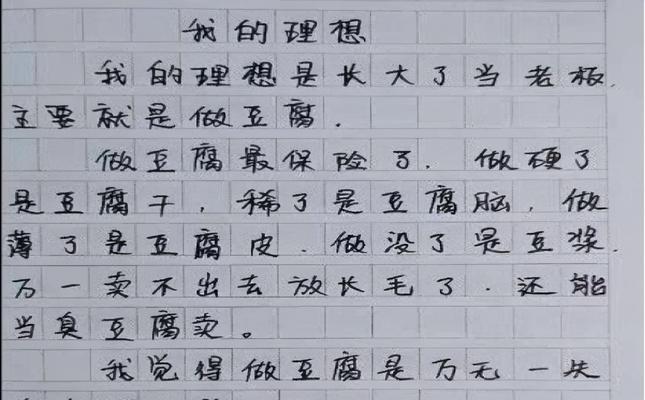 我的理想
我的理想是长大了当老板.
主要就是做豆腐.
做豆腐最保险了.做硬了
是豆腐干,稀了是豆腐脑,做
薄了是豆腐皮.做没了是豆浆.
万一卖不出去放长毛了.还能
当臭豆腐卖。
我觉得做豆腐是万无一失